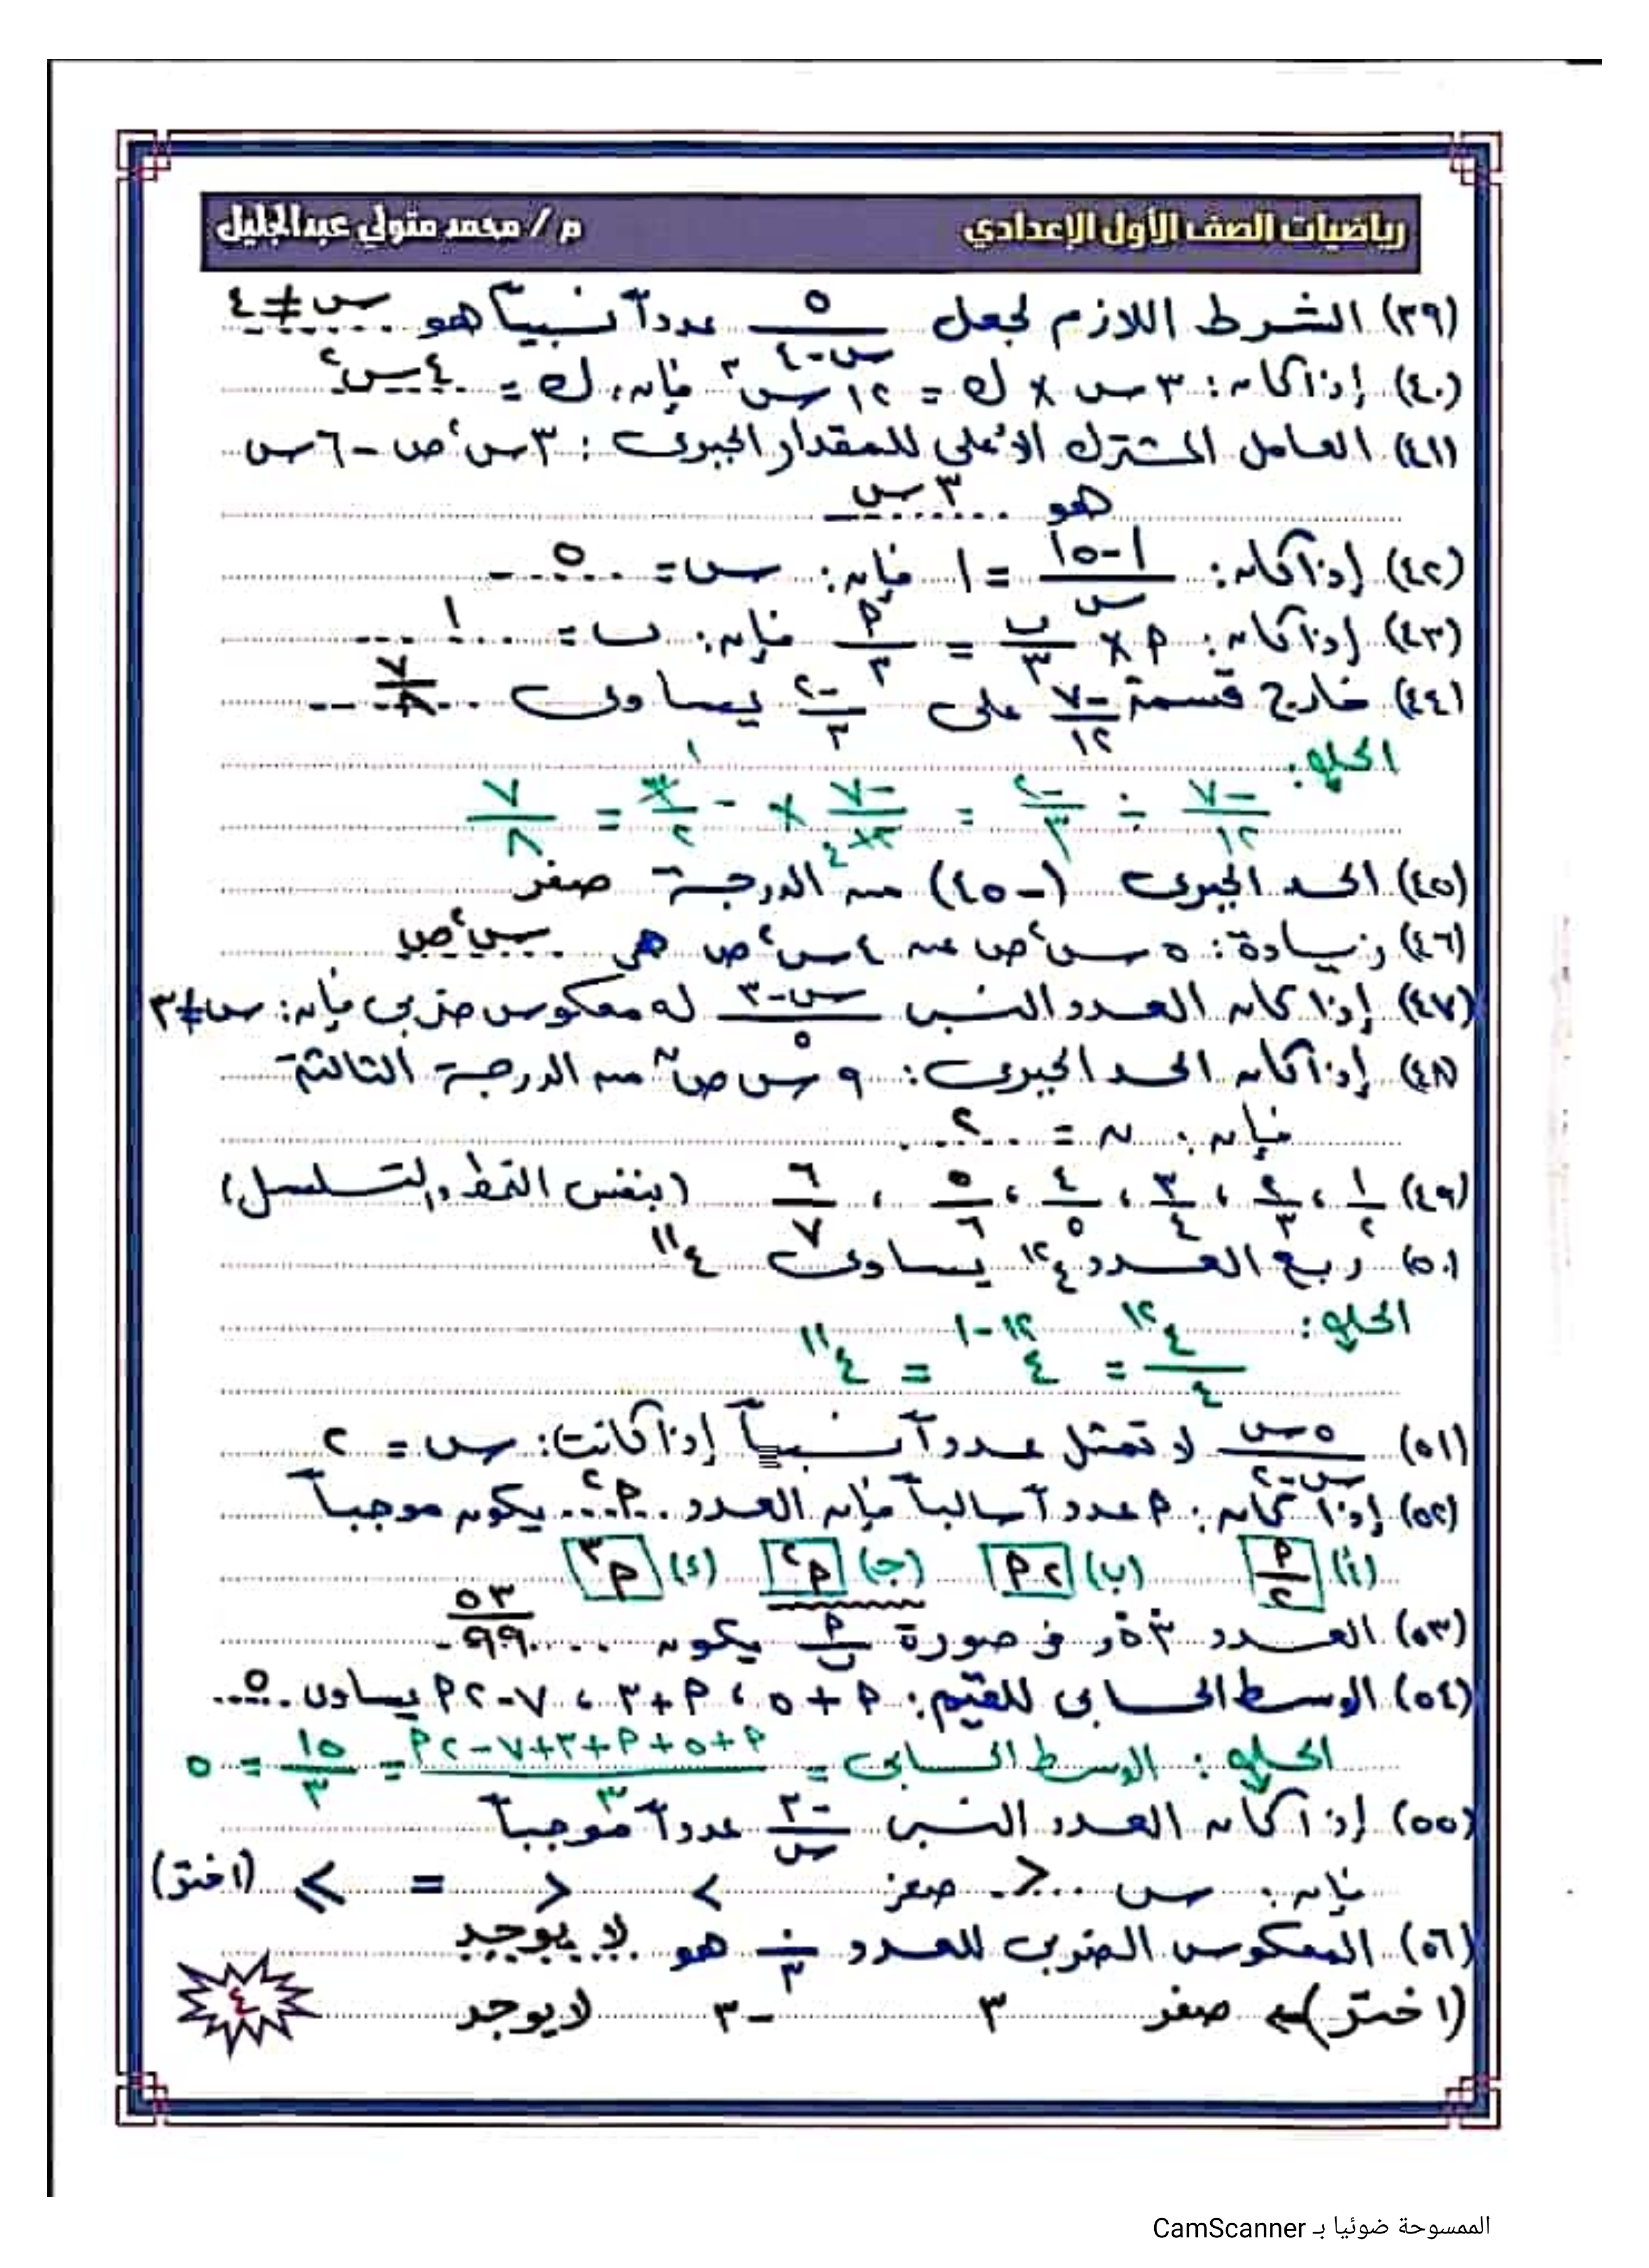 رياضيات الصف الأول الإعدادي م / محمد متولي عبدالجليل
(٣٩) الشرط اللازم لجعل ٥/(س-٤) عدداً نسبياً هو س ≠ ٤
(٤٠) إذا كان: ٣س × ك = ١٢س٣ فإن: ك = ٤س٢
(٤١) العامل المشترك الأعلى للمقدار الجبرى: ٣س٢ص - ٦س
هو ٣س
(٤٢) إذا كان: |-٥|/س = ١ فإن: س = ٥
(٤٣) إذا كان: م × ب/٣ = م/٣ فإن: ب = ١
(٤٤) خارج قسمة -٧/١٢ على -٢/٣ يساوى ٧/٨
الحل:
-٧/١٢ ÷ -٢/٣ = -٧/١٢ × -٣/٢ = ٧/٨
(٤٥) الحد الجبرى (-٤٥) من الدرجة صفر
(٤٦) زيادة: ٥س٢ص عن ٤س٢ص هى س٢ص
(٤٧) إذا كان العدد النسبى (س-٣)/٥ له معكوس ضربى فإن: س ≠ ٣
(٤٨) إذا كان الحد الجبرى: ٩س ص^ن من الدرجة الثالثة
فإن: ن = ٢
(٤٩) ١/٢ ، ٢/٣ ، ٣/٤ ، ٤/٥ ، ٥/٦ ، ٦/٧ (بنفس النمط والتسلسل)
(٥٠) ربع العدد ٤^١٢ يساوى ٤^١١
الحل:
٤^١٢/٤ = ٤^(١٢-١) = ٤^١١
(٥١) ٥س/(س-٢) لا تمثل عدداً نسبياً إذا كانت: س = ٢
(٥٢) إذا كان: م عدداً سالباً فإن العدد م٢ يكون موجباً
(أ) م/٢ (ب) ٢م (ج) م٢ (د) م٣
(٥٣) العدد ٠,٥٣ فى صورة م/ب يكون ٥٣/٩٩
(٥٤) الوسط الحسابى للقيم: م+٥ ، م+٣ ، ٧-٢م يساوى ٥
الحل: الوسط الحسابى = (م+٥+م+٣+٧-٢م)/٣ = ١٥/٣ = ٥
(٥٥) إذا كان العدد النسبى -٣/س عدداً موجباً
فإن: س < صفر > < = ≥ (اختر)
(٥٦) المعكوس الضربى للعدد ٠/٣ هو لا يوجد
(اختر) صفر ٣ -٣ لا يوجد
٤
الممسوحة ضوئيا بـ CamScanner